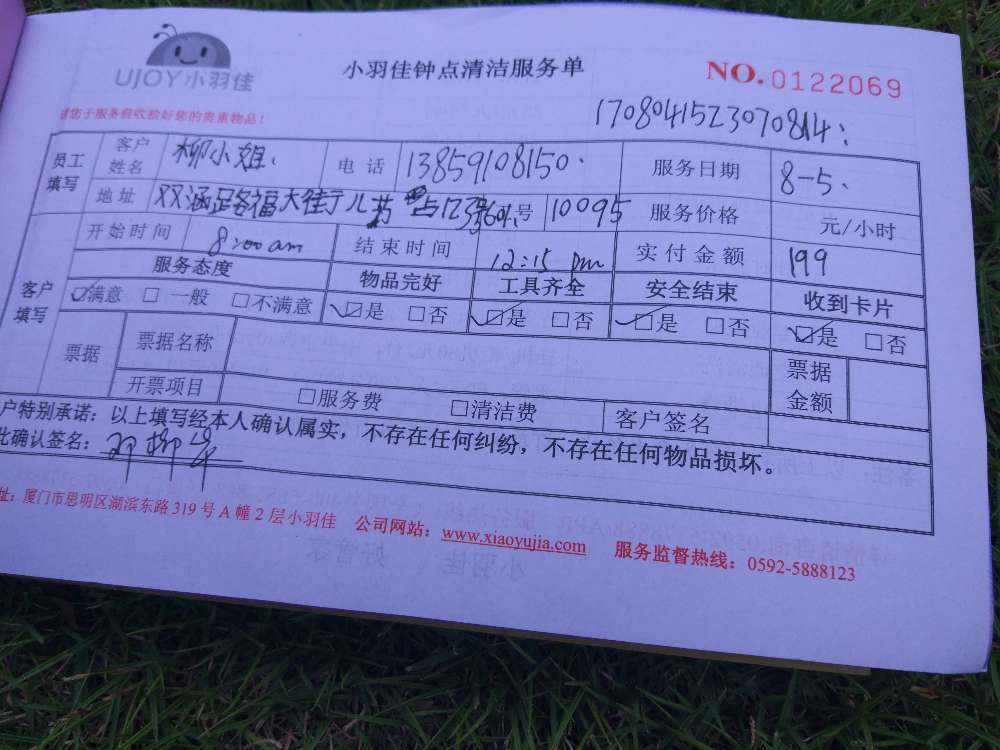 UJOY小羽佳
小羽佳钟点清洁服务单
NO.0122069
您于服务前收拾好您的贵重物品!
1708041523070814:
员工填写 客户姓名 柳小姐 电话 13859108150 服务日期 8-5
地址 10095 服务价格 元/小时
开始时间 8:00am 结束时间 12:15 pm 实付金额 199
客户填写 服务态度 物品完好 工具齐全 安全结束 收到卡片
☑满意 □一般 □不满意 ☑是 □否 ☑是 □否 ☑是 □否 ☑是 □否
票据 票据名称 票据金额
开票项目 □服务费 □清洁费 客户签名
户特别承诺:以上填写经本人确认属实,不存在任何纠纷,不存在任何物品损坏。
此确认签名:
址:厦门市思明区湖滨东路319号A幢2层小羽佳 公司网站:www.xiaoyujia.com 服务监督热线:0592-5888123